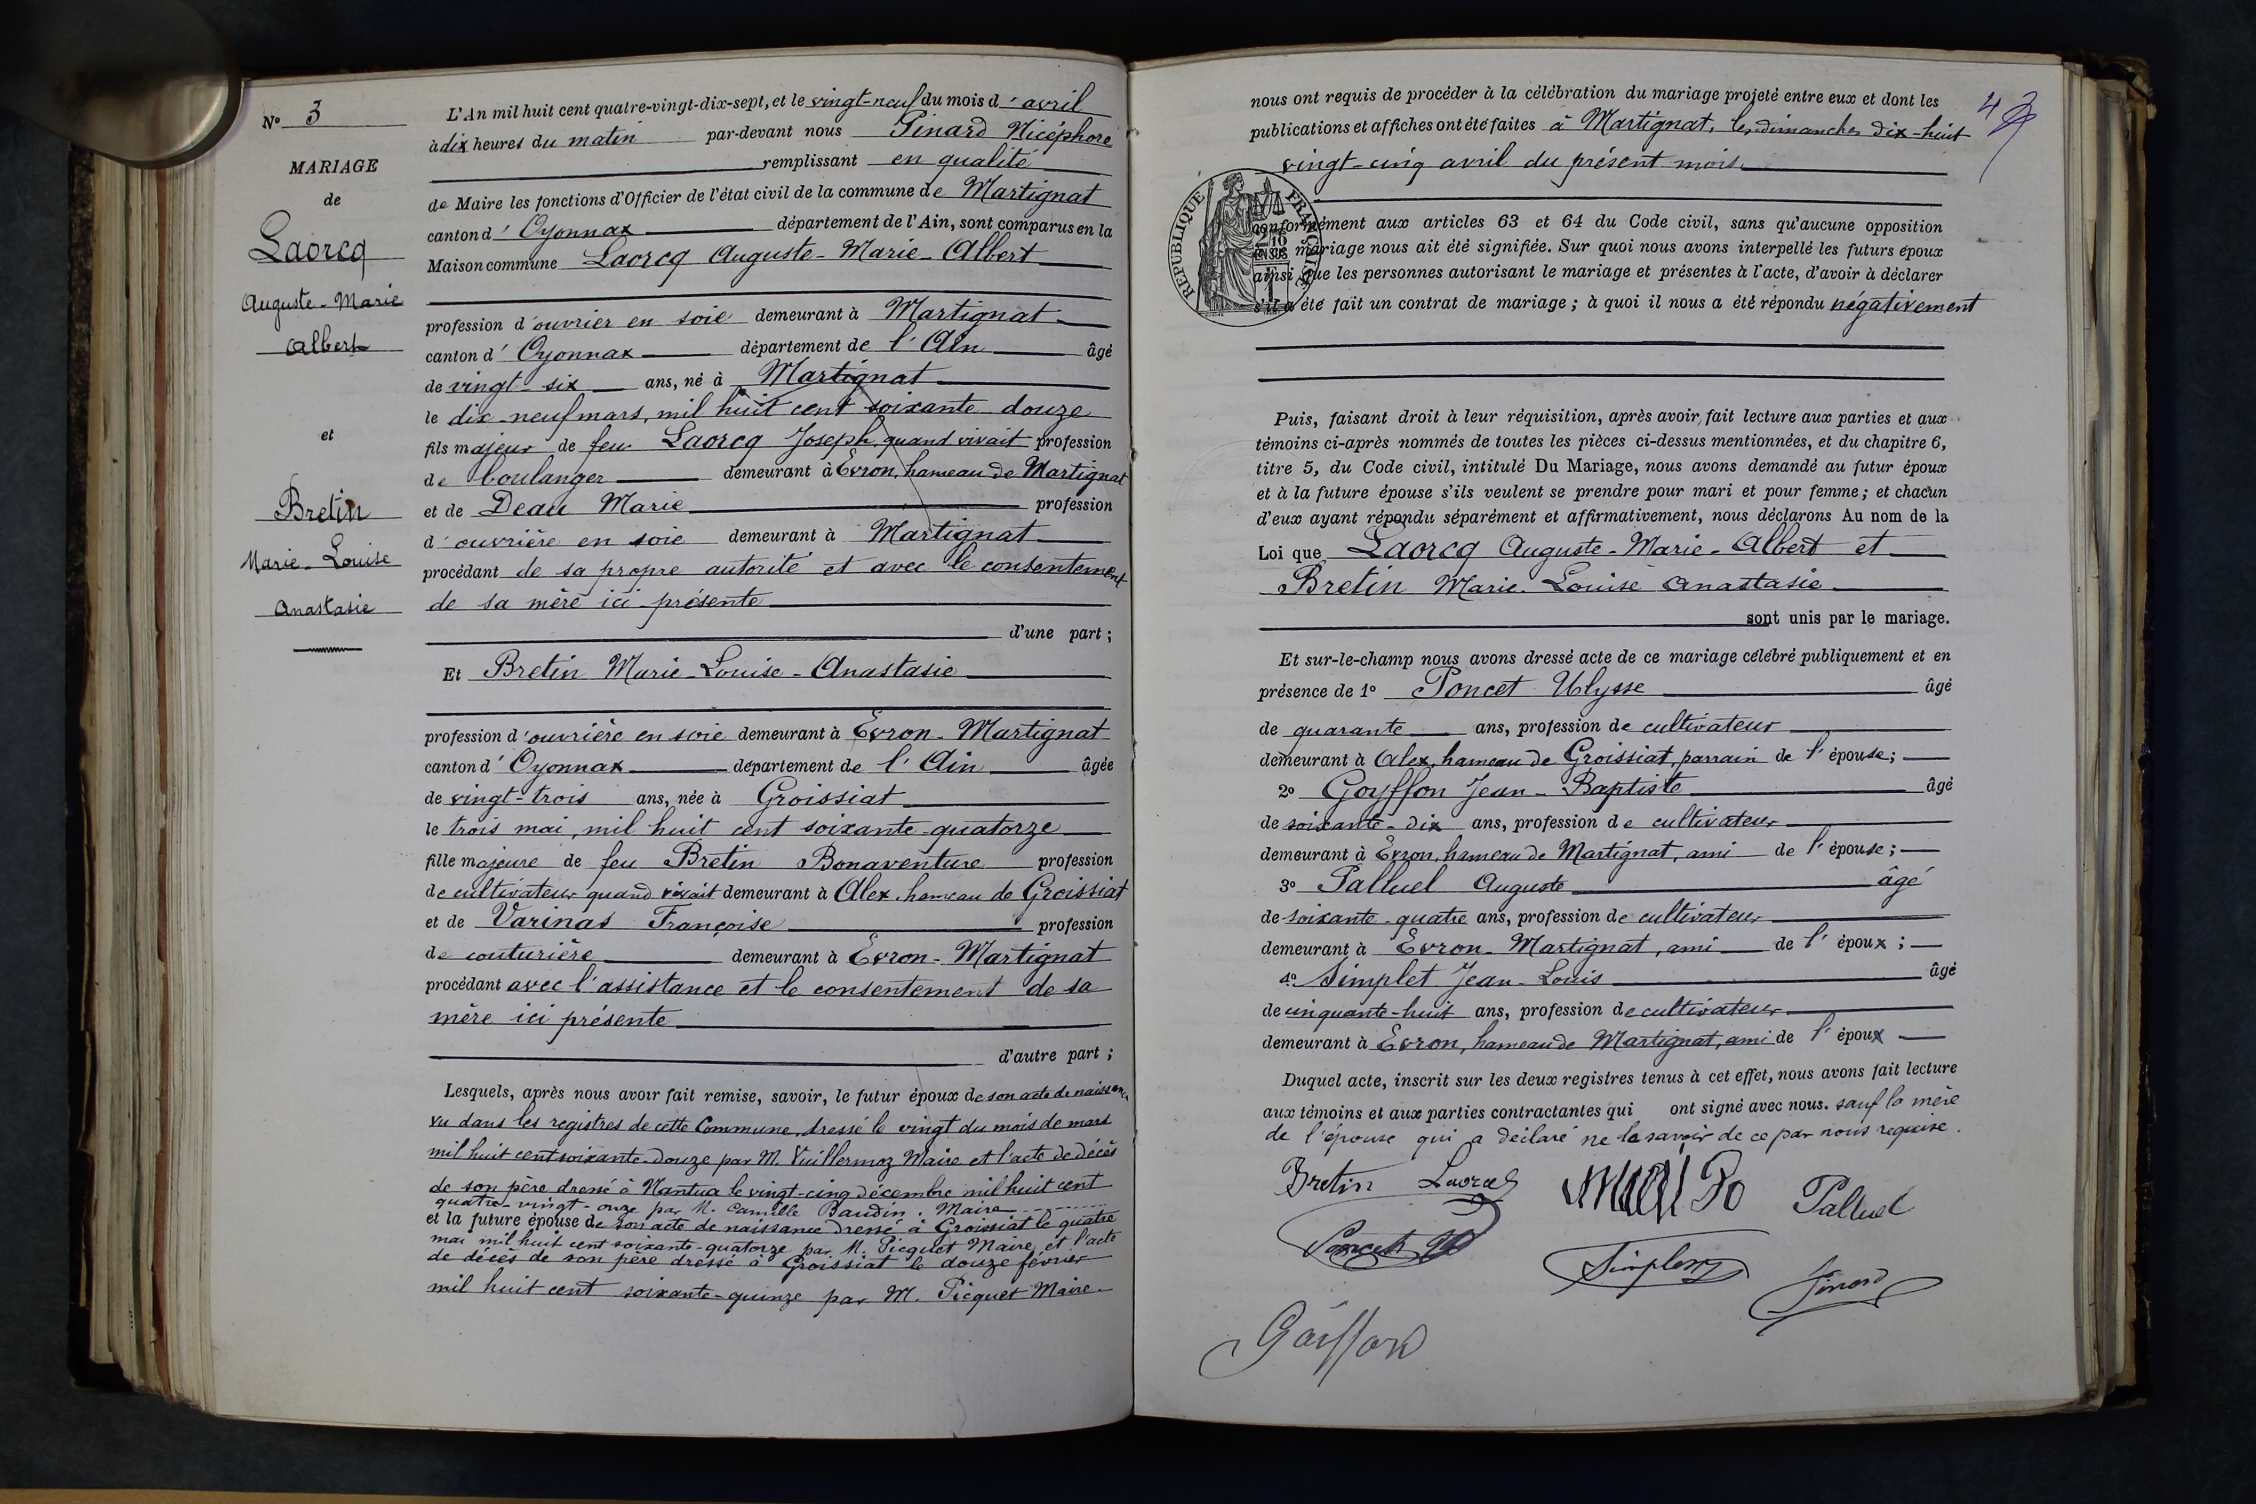 N° 3
MARIAGE
de
Laorcq
Auguste-Marie
Albert
et
Bretin
Marie-Louise
Anastasie
L'An mil huit cent quatre-vingt-dix-sept, et le vingt-neuf du mois d'avril
à dix heures du matin par-devant nous Pinard Nicéphore
remplissant en qualité
de Maire les fonctions d'Officier de l'état civil de la commune de Martignat
canton d'Oyonnax département de l'Ain, sont comparus en la
Maison commune Laorcq Auguste-Marie-Albert
profession d'ouvrier en soie demeurant à Martignat
canton d'Oyonnax département de l'Ain âgé
de vingt-six ans, né à Martignat
le dix-neuf mars, mil huit cent soixante douze
fils majeur de feu Laorcq Joseph, quand vivait profession
de boulanger demeurant à Evron, hameau de Martignat
et de Deau Marie profession
d'ouvrière en soie demeurant à Martignat
procédant de sa propre autorité et avec le consentement
de sa mère ici présente
d'une part ;
Et Bretin Marie-Louise-Anastasie
profession d'ouvrière en soie demeurant à Evron-Martignat
canton d'Oyonnax département de l'Ain âgée
de vingt-trois ans, née à Groissiat
le trois mai, mil huit cent soixante-quatorze
fille majeure de feu Bretin Bonaventure profession
de cultivateur quand vivait demeurant à Alex, hameau de Groissiat
et de Varinas Françoise profession
de couturière demeurant à Evron-Martignat
procédant avec l'assistance et le consentement de sa
mère ici présente
d'autre part ;
Lesquels, après nous avoir fait remise, savoir, le futur époux de son acte de naissance
vu dans les registres de cette Commune, dressé le vingt du mois de mars
mil huit cent soixante-douze par M. Vuillermoz Maire et l'acte de décès
de son père dressé à Nantua le vingt-cinq décembre mil huit cent
quatre-vingt-onze par M. Camille Baudin, Maire
et la future épouse de son acte de naissance dressé à Groissiat le quatre
mai mil huit cent soixante-quatorze par M. Picquet Maire, et l'acte
de décès de son père dressé à Groissiat le douze février
mil huit cent soixante-quinze par M. Picquet Maire.
nous ont requis de procéder à la célébration du mariage projeté entre eux et dont les
publications et affiches ont été faites à Martignat, les dimanches dix-huit
vingt-cinq avril du présent mois
RÉPUBLIQUE FRANÇAISE
conformément aux articles 63 et 64 du Code civil, sans qu'aucune opposition
à ce mariage nous ait été signifiée. Sur quoi nous avons interpellé les futurs époux
ainsi que les personnes autorisant le mariage et présentes à l'acte, d'avoir à déclarer
s'il a été fait un contrat de mariage ; à quoi il nous a été répondu négativement
Puis, faisant droit à leur réquisition, après avoir fait lecture aux parties et aux
témoins ci-après nommés de toutes les pièces ci-dessus mentionnées, et du chapitre 6,
titre 5, du Code civil, intitulé Du Mariage, nous avons demandé au futur époux
et à la future épouse s'ils veulent se prendre pour mari et pour femme ; et chacun
d'eux ayant répondu séparément et affirmativement, nous déclarons Au nom de la
Loi que Laorcq Auguste-Marie-Albert et
Bretin Marie-Louise Anastasie
sont unis par le mariage.
Et sur-le-champ nous avons dressé acte de ce mariage célébré publiquement et en
présence de 1° Poncet Ulysse âgé
de quarante ans, profession de cultivateur
demeurant à Alex, hameau de Groissiat, parrain de l'épouse ;
2° Goyffon Jean-Baptiste âgé
de soixante-dix ans, profession de cultivateur
demeurant à Evron, hameau de Martignat, ami de l'épouse ;
3° Palluel Auguste âgé
de soixante-quatre ans, profession de cultivateur
demeurant à Evron-Martignat, ami de l'époux ;
4° Simplet Jean-Louis âgé
de cinquante-huit ans, profession de cultivateur
demeurant à Evron, hameau de Martignat, ami de l'époux
Duquel acte, inscrit sur les deux registres tenus à cet effet, nous avons fait lecture
aux témoins et aux parties contractantes qui ont signé avec nous. sauf la mère
de l'épouse qui a déclaré ne le savoir de ce par nous requise.
Bretin Laorcq Palluel
Poncet Simplet Pinard
Goiffon